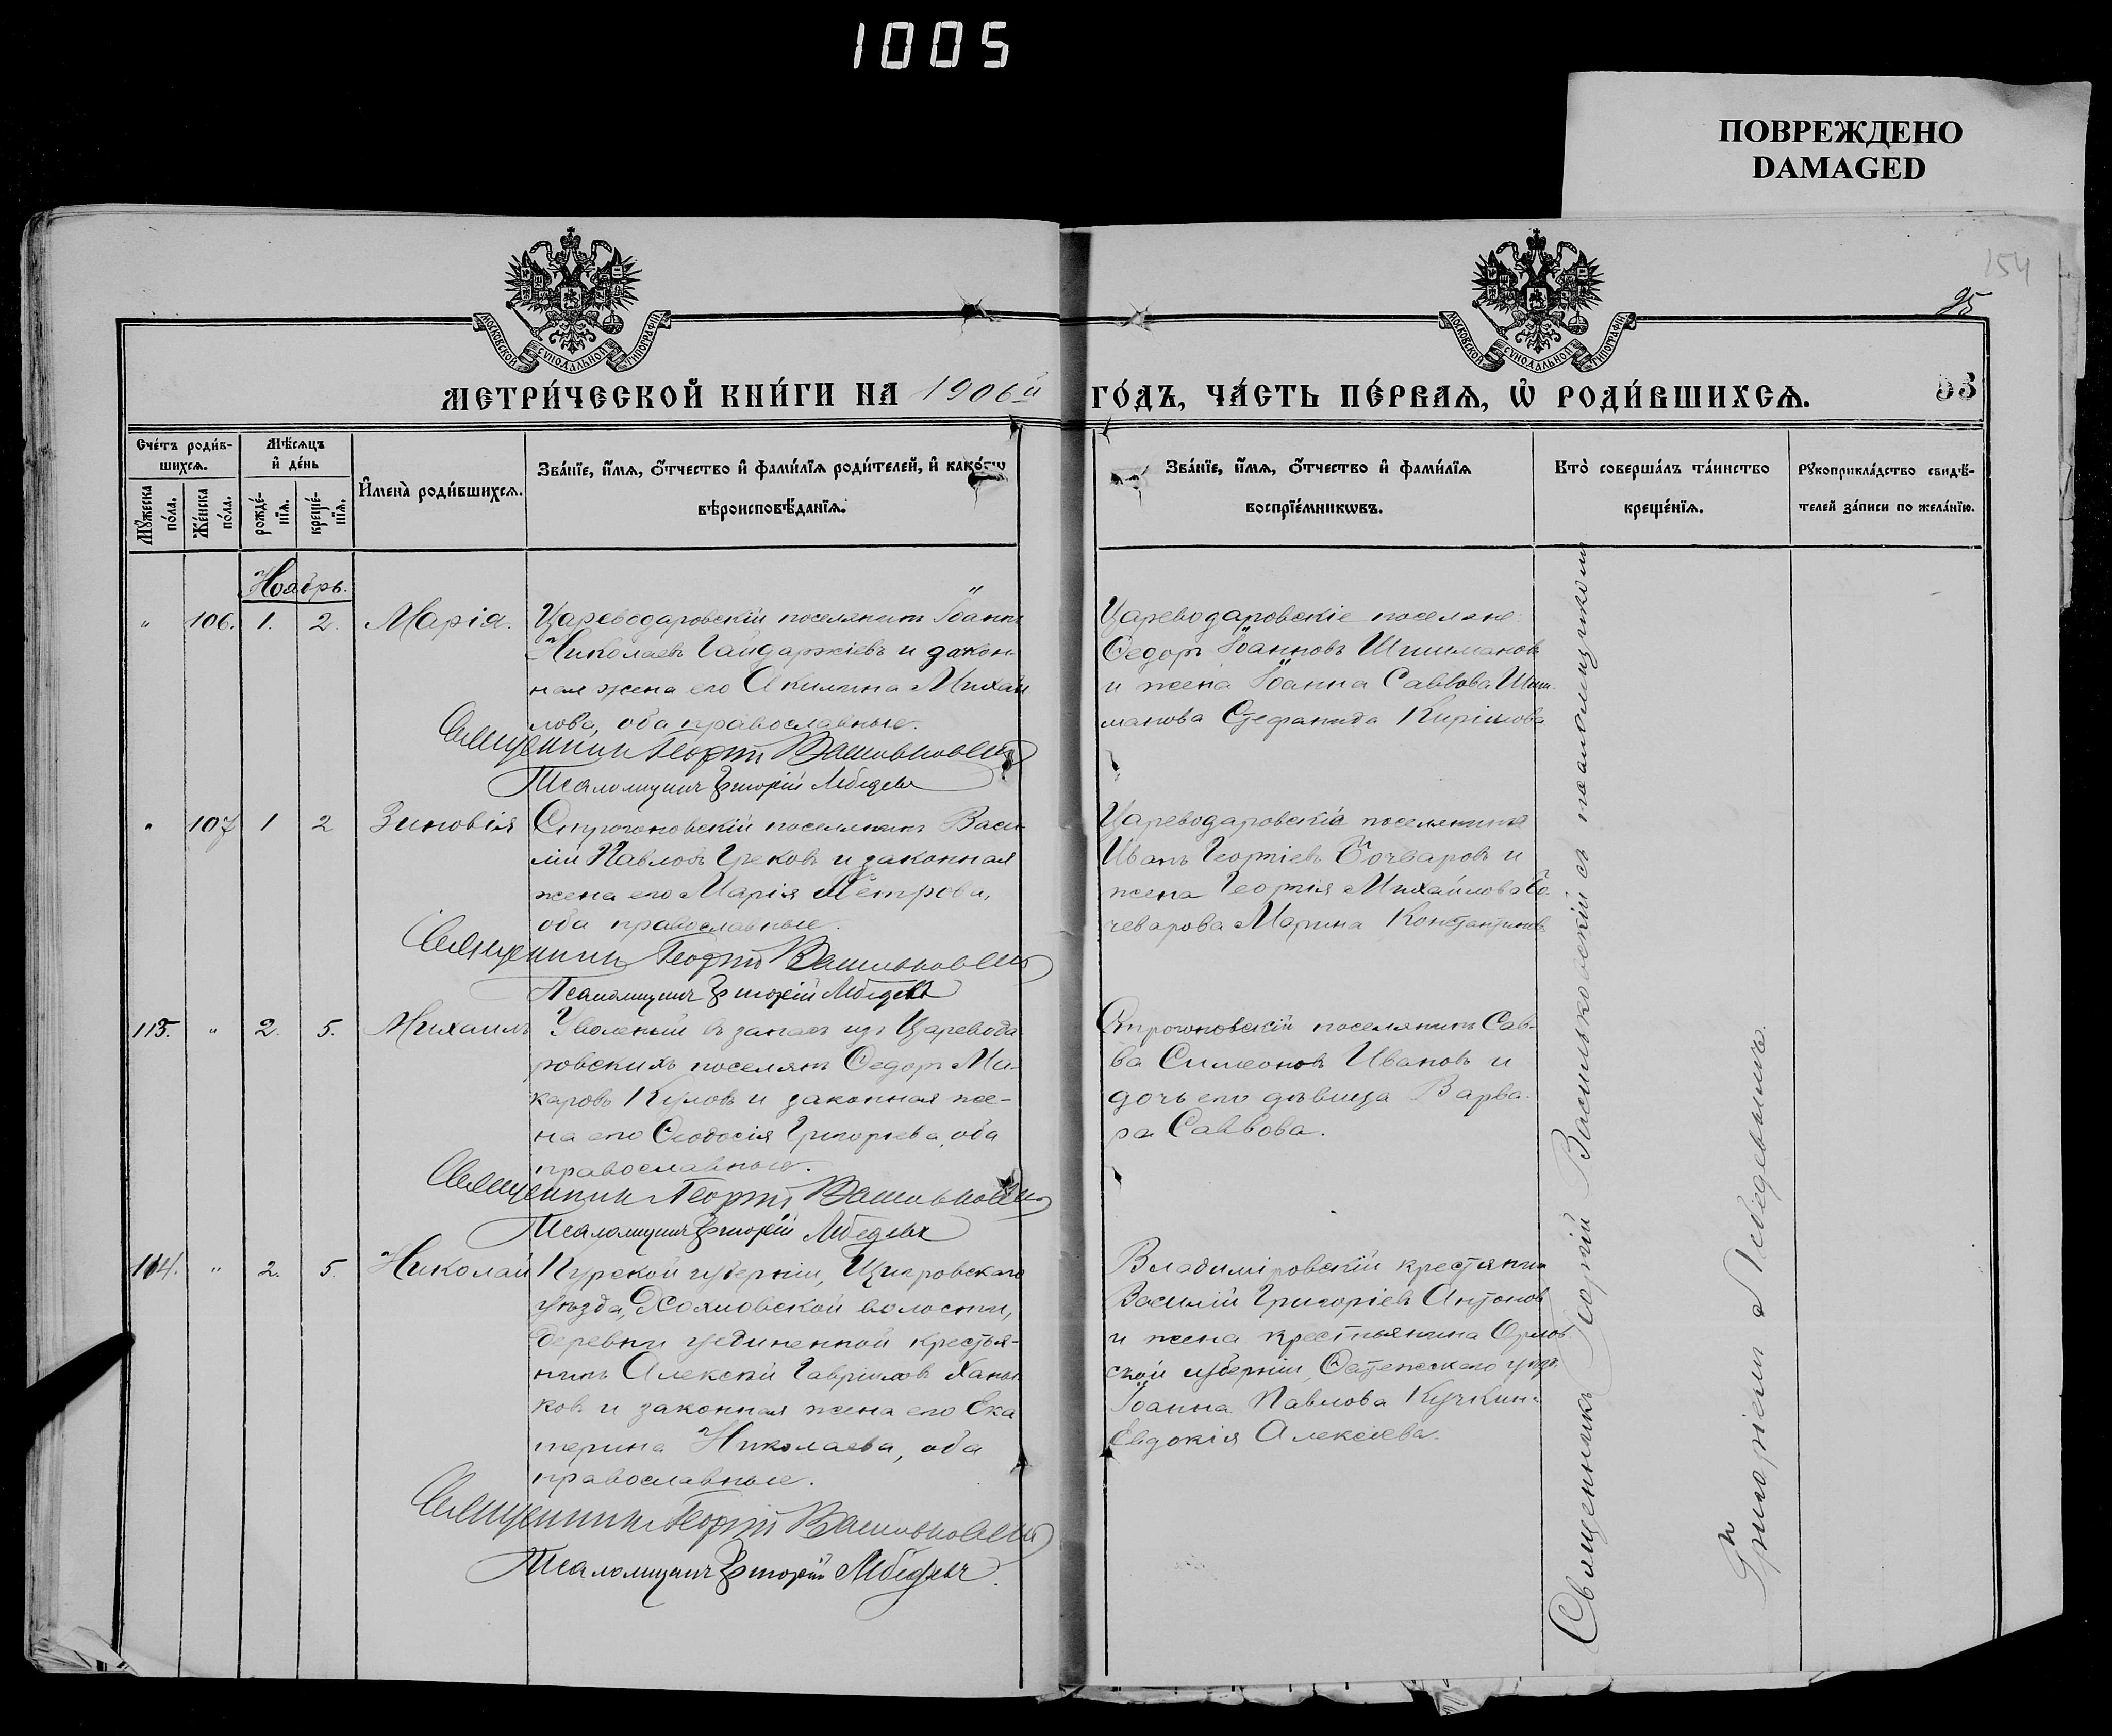 1005
ПОВРЕЖДЕНО
DAMAGED
154
95
МОСКОВСКОЙ СѴНОДАЛЬНОЙ ТИПОГРАФІИ
МОСКОВСКОЙ СѴНОДАЛЬНОЙ ТИПОГРАФІИ
МЕТРИ́ЧЕСКОЙ КНИ́ГИ НА 1906й ГО́ДЪ, ЧА́СТЬ ПЕ́РВАЯ, Ѡ РОДИ́ВШИХСЯ.
53
Сче́тъ роди́в-
шихся.
Мѣ́сяцъ
и де́нь
Мꙋ́жеска по́ла.
Же́нска по́ла.
рожде́-
нїя.
креще́-
нїя.
Имена̀ роди́вшихся.
Зва́нїе, и́мя, о́тчество и фами́лїя роди́телей, и како́гѡ
вѣроисповѣ́данїя.
Зва́нїе, и́мя, о́тчество и фами́лїя
воспрїе́мникѡвъ.
Кто̀ соверша́лъ та́инство
креще́нїя.
Рꙋкоприкла́дство свидѣ́-
телей за́писи по жела́нїю.
Ноябрь.
" 106. 1. 2. Марія. Цареводаровскій поселянинъ Іоаннъ
Николаевъ Гайдаржіевъ и закон-
ная жена его Акилина Михаи
лова, оба православные.
Священникъ Георгій Васильковскій
Псаломщикъ Григорій Лебедевъ
Цареводаровскіе поселяне:
Ѳедоръ Іоанновъ Шишмановъ
и жена Іоанна Саввова Шиш-
манова Стефанида Кирилова
" 107 1 2 Зиновія Строгоновскій поселянинъ Васи-
лій Павловъ Грековъ и законная
жена его Марія Петрова,
оба православные.
Священникъ Георгій Васильковскій
Псаломщикъ Григорій Лебедевъ
Цареводаровскій поселянинъ
Иванъ Георгіевъ Бочваровъ и
жена Георгія Михайлова Бо-
чеварова Марина Константинова
113. " 2. 5. Михаилъ Уволеный въ запасъ изъ Царевода
ровскихъ поселянъ Ѳедоръ Ма-
каровъ Куловъ и законная же-
на его Ѳеодосія Григорьева, оба
православные.
Священникъ Георгій Васильковскій
Псаломщикъ Григорій Лебедевъ
Строгоновскій поселянинъ Сав-
ва Симеоновъ Ивановъ и
дочь его дѣвица Варва-
ра Саввова.
114. " 2. 5. Николай Курской губерніи, Щигровскаго
уѣзда, волости,
деревни уединенной крестья-
нинъ Алексѣй Гавріиловъ
ковъ и законная жена его Ека
терина Николаева, оба
православные.
Священникъ Георгій Васильковскій
Псаломщикъ Григорій Лебедевъ
Владиміровскій крестьянинъ
Василій Григоріевъ Антоновъ
и жена крестьянина Орлов-
ской губерніи,
Іоанна Павлова
Евдокія Алексіева.
Священникъ Георгій Васильковскій съ псаломщикомъ
Григоріемъ Лебедевымъ.